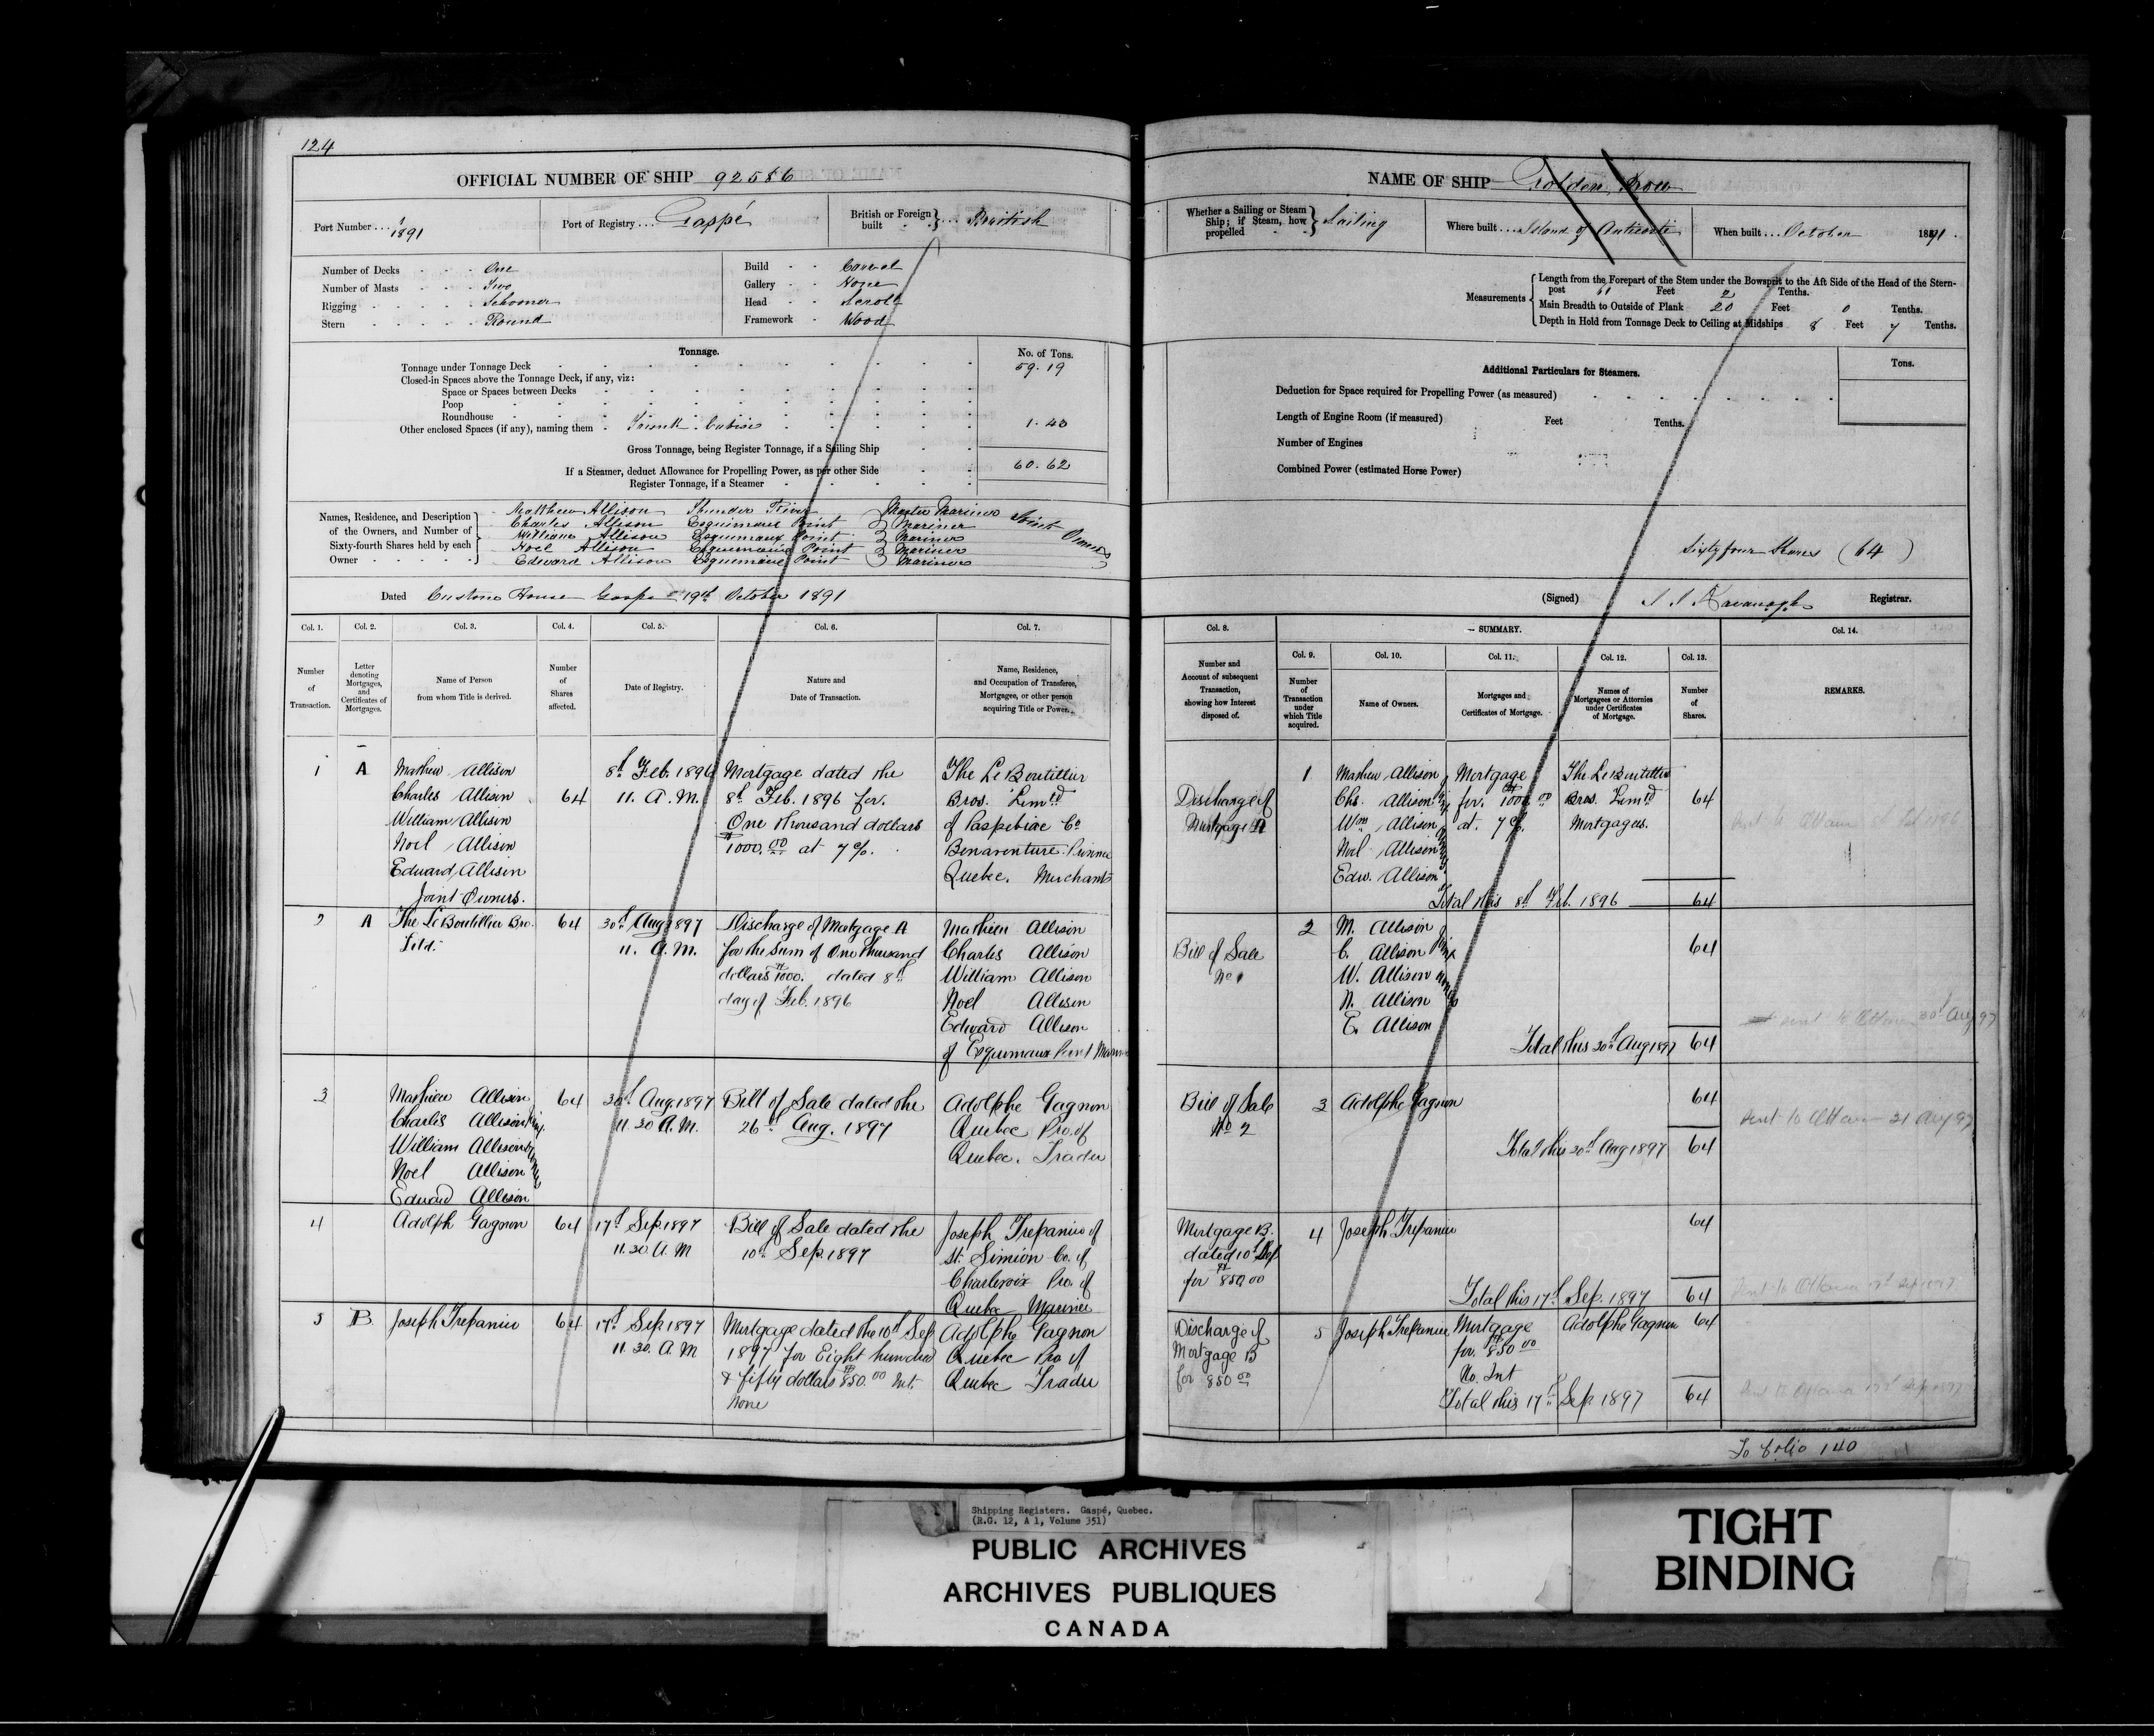 124
OFFICIAL NUMBER OF SHIP 92586
Port Number ... 1/1891
Port of Registry ... Gaspé
British or Foreign built } ... British
Number of Decks - - - One
Number of Masts - - - Two
Rigging - - - - - Schooner
Stern - - - - - Round
Build - - Carvel
Gallery - - None
Head - - Scroll
Framework - Wood
Tonnage.
No. of Tons.
Tonnage under Tonnage Deck 59.19
Closed-in Spaces above the Tonnage Deck, if any, viz:
Space or Spaces between Decks
Poop
Roundhouse
Other enclosed Spaces (if any), naming them - Trunk Cabin 1.43
Gross Tonnage, being Register Tonnage, if a Sailing Ship
60.62
If a Steamer, deduct Allowance for Propelling Power, as per other Side
Register Tonnage, if a Steamer
Names, Residence, and Description of the Owners, and Number of Sixty-fourth Shares held by each Owner
Matthew Allison Thunder River Master Mariner
Charles Allison Esquimaux Point Mariner
William Allison Esquimaux Point Mariner
Noel Allison Esquimaux Point Mariner
Edward Allison Esquimaux Point Mariner
Joint Owners
Dated Customs House Gaspé 19th October 1891
Col. 1. Col. 2. Col. 3. Col. 4. Col. 5. Col. 6. Col. 7.
Number of Transaction.
Letter denoting Mortgages, and Certificates of Mortgages.
Name of Person from whom Title is derived.
Number of Shares affected.
Date of Registry.
Nature and Date of Transaction.
Name, Residence, and Occupation of Transferee, Mortgagee, or other person acquiring Title or Power.
1 A Mathew Allison 8th Feb. 1896 Mortgage dated the The Le Boutillier
Charles Allison 64 11. A.M. 8th Feb. 1896 for. Bros. Limtd
William Allison One thousand dollars of Paspebiac Co
Noel Allison $1000.00 at 7%. Bonaventure Province
Edward Allison Quebec. Merchants
Joint Owners.
2 A The Le Boutillier Bro. 64 30th Aug 1897 Discharge of Mortgage A Mathew Allison
Ltd. 11. A.M. for the Sum of One thousand Charles Allison
dollars $1000. dated 8th William Allison
day of Feb. 1896 Noel Allison
Edward Allison
of Esquimaux Point Mariners
3 Mathew Allison 64 30th Aug 1897 Bill of Sale dated the Adolphe Gagnon
Charles Allison 11.30 A.M. 26th Aug. 1897 Quebec Pro. of
William Allison Quebec. Trader
Noel Allison
Edward Allison
Joint Owners
4 Adolph Gagnon 64 17th Sep. 1897 Bill of Sale dated the Joseph Trepanier of
11.30 A.M 10th Sep. 1897 St. Simion Co. of
Charlevoix Pro. of
Quebec Mariner
5 B Joseph Trepanier 64 17th Sep 1897 Mortgage dated the 10th Sep Adolphe Gagnon
11.30. A.M 1897 for Eight hundred Quebec Pro of
& fifty dollars $850.00 Int. Quebec Trader
None
NAME OF SHIP Golden Prow
Whether a Sailing or Steam Ship; if Steam, how propelled } Sailing
Where built ... Island of Anticosti
When built ... October 1891.
Measurements
Length from the Forepart of the Stem under the Bowsprit to the Aft Side of the Head of the Stern-
post 61 Feet 2 Tenths.
Main Breadth to Outside of Plank 20 Feet 0 Tenths.
Depth in Hold from Tonnage Deck to Ceiling at Midships 8 Feet 7 Tenths.
Additional Particulars for Steamers.
Tons.
Deduction for Space required for Propelling Power (as measured)
Length of Engine Room (if measured) Feet Tenths.
Number of Engines
Combined Power (estimated Horse Power)
Sixty four Shares (64)
(Signed) Kavanagh Registrar.
Col. 8. SUMMARY. Col. 14.
Col. 9. Col. 10. Col. 11. Col. 12. Col. 13.
Number and Account of subsequent Transaction, showing how Interest disposed of.
Number of Transaction under which Title acquired.
Name of Owners.
Mortgages and Certificates of Mortgage.
Names of Mortgagees or Attornies under Certificates of Mortgage.
Number of Shares.
REMARKS.
1 Mathew Allison Mortgage The Le Boutillier
Discharge of Chs. Allison for. $1000.00 Bros. Limtd 64
Mortgage A Wm Allison at. 7%. Mortgagees.
Noel Allison
Edw. Allison
Total this 8th Feb. 1896 64
2 M. Allison
Bill of Sale C. Allison 64
No 1 W. Allison
N. Allison
E. Allison
sent to Ottawa 30th Aug 97
Total this 30th Aug 1897 64
Bill of Sale 3 Adolphe Gagnon 64
No 2
sent to Ottawa 31 Aug 97
Total this 30th Aug 1897 64
Mortgage B. 4 Joseph Trepanier 64
dated 10th Sep
for $850.00
Total this 17th Sep. 1897 64
Discharge of 5 Joseph Trepanier Mortgage Adolphe Gagnon 64
Mortgage B for. $850.00
for 850.00 No. Int
Total this 17th Sep 1897 64
To folio 140
Shipping Registers. Gaspé, Quebec.
(R.G. 12, A 1, Volume 351)
PUBLIC ARCHIVES
ARCHIVES PUBLIQUES
CANADA
TIGHT
BINDING